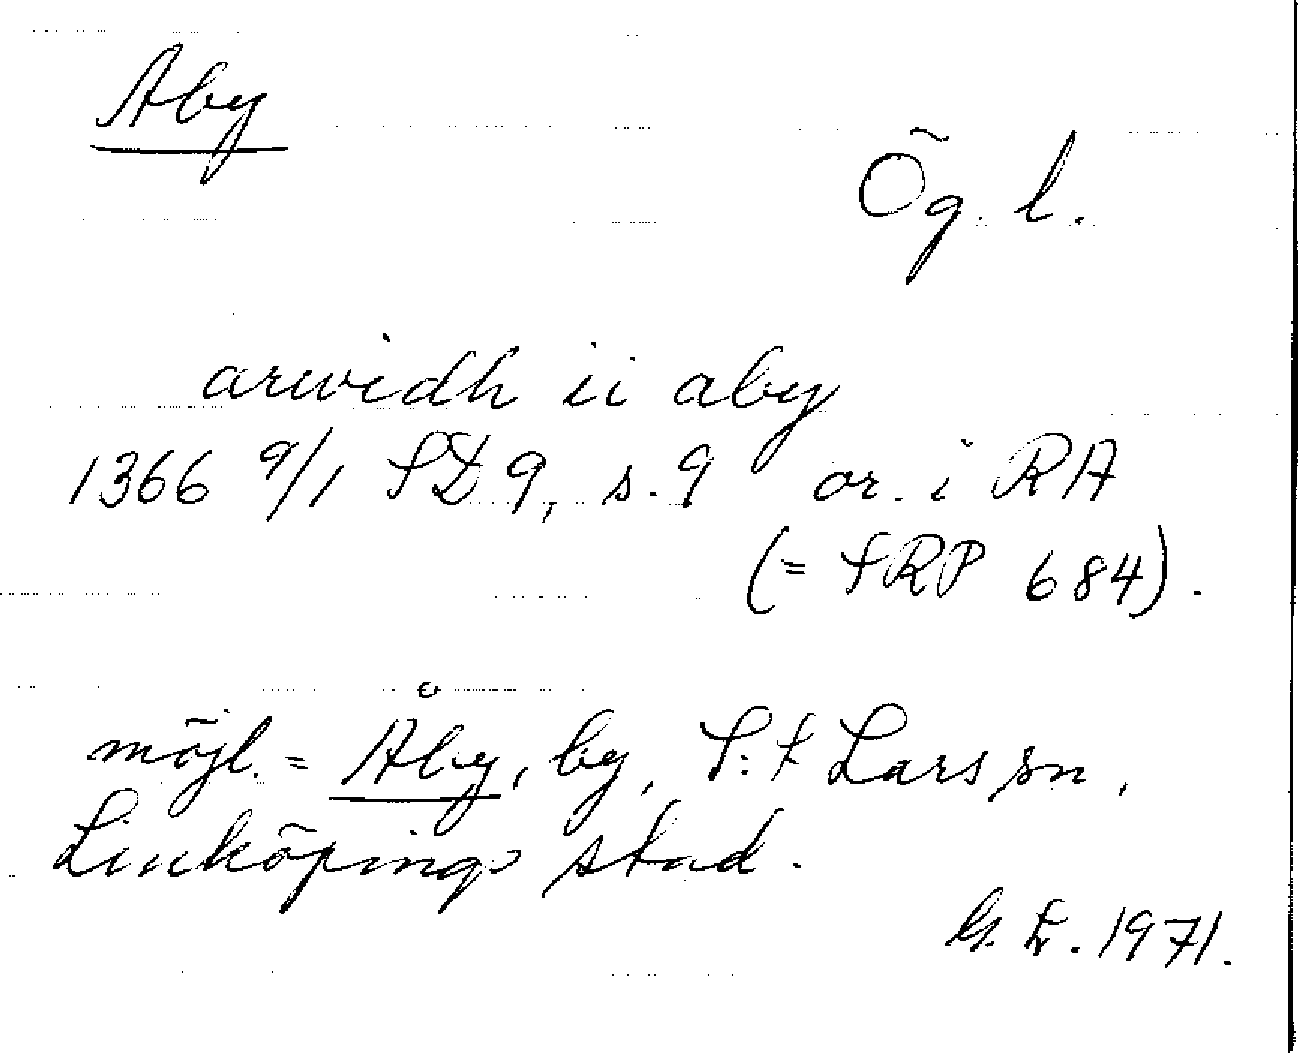 Aby
Ög. l.
arwidh ii aby
1366 9/1 SD 9, s. 9 or. i RA
(= SRP 684).
möjl. = Åby, by, S:t Lars sn,
Linköpings stad.
1971.